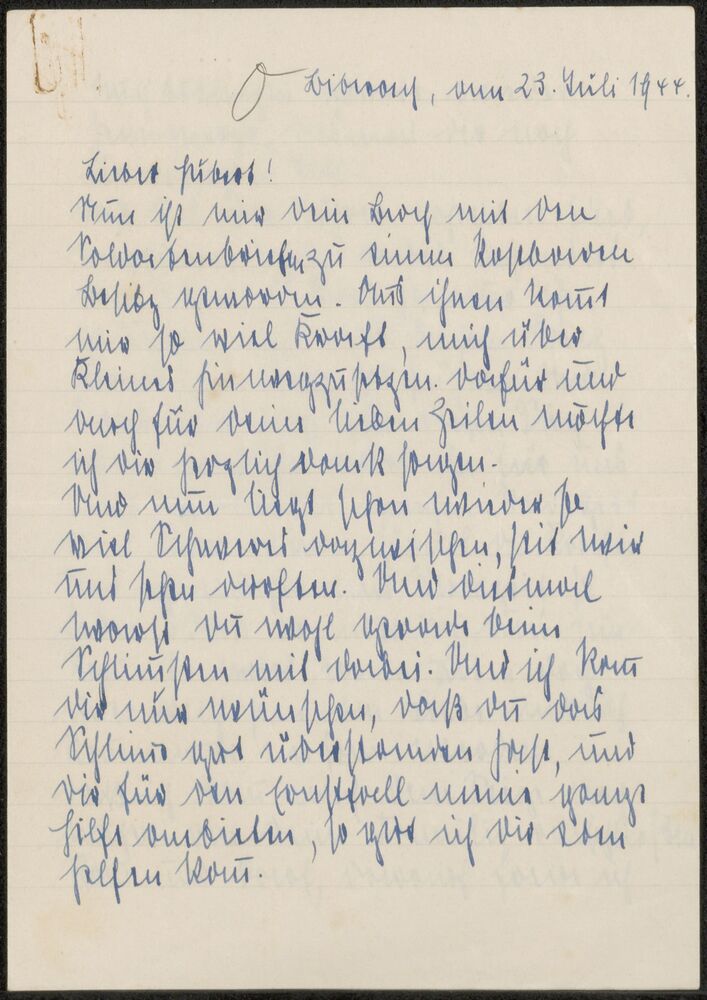 Biberach, am 23. Juli 1944.
Lieber Hubert!
Nun ist mir Dein Buch mit den
Soldatenbriefen zu einem kostbaren
Besitz geworden. Aus ihnen kom̅t
mir so viel Kraft, mich über
Kleines hinwegzusetzen. Dafür und
auch für Deine lieben Zeilen möchte
ich Dir herzlich Dank sagen.
Und nun liegt schon wieder so
viel Schweres dazwischen, seit wir
uns sehen durften. Und diesmal
warst Du wohl gerade beim
Schlim̅sten mit dabei. Und ich kan̅
Dir nur wünschen, daß Du das
Schlim̅e gut überstanden hast, und
Dir für den Ernstfall meine ganze
Hilfe anbieten, so gut ich Dir eben
helfen kan̅.